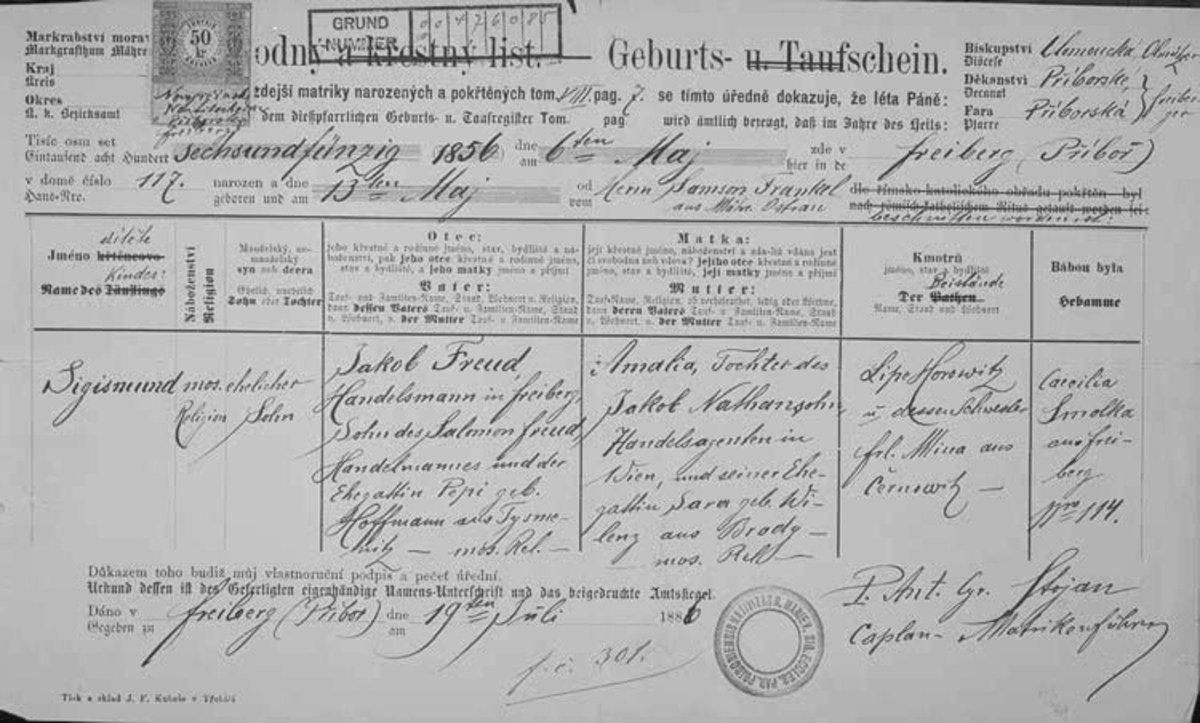 GRUND
-NUMMER
00426085
50
kr
Markrabství morav
Markgrafthum Mähre
Kraj
Kreis
Okres
K. k. Bezirksamt
odný a křestný list. Geburts- u. Taufschein.
Biskupství
Diöcese
Olmützer
Děkanství Příborské,
Decanat
Fara Příborská
Pfarre
Freiberger
zdejší matriky narozených a pokřtěných tom. VIII. pag. 7. se tímto úředně dokazuje, že léta Páně:
dem dießpfarrlichen Geburts- u. Taufregister Tom. pag. wird ämtlich bezeugt, daß im Jahre des Heils:
Tisíc osm set
Eintausend acht Hundert Sechsundfünzig 1856 dne
am 6ten Maj zde v
hier in de Freiberg (Příbor)
v domě číslo
Haus-Nro. 117. narozen a dne
geboren und am 13ten Maj od
vom Herrn Samson Frankel
aus Mähr. Ostrau
dle římsko katolického obřadu pokřtěn byl
nach römisch-katholischem Ritus getauft worden sei
beschnitten worden ist:
dítěte
Jméno křtěncovo
Kindes:
Name des Täuflings
Náboženství
Religion
Manželský, nemanželský
syn neb dcera
Ehelich, unehelich
Sohn oder Tochter
Otec:
jeho křestné a rodinné jméno, stav, bydliště a náboženství, pak jeho otce křestné a rodinné jméno,
stav a bydliště, a jeho matky jméno a příjmí
Vater:
Tauf- und Familien-Name, Stand, Wohnort u. Religion,
dann dessen Vaters Tauf- u. Familien-Name, Stand
u. Wohnort, u. der Mutter Tauf- u. Familien-Name
Matka:
její křestné jméno, náboženství a zda-liž vdaná jest
či svobodna neb vdova? jejího otce křestné a rodinné
jméno, stav a bydliště, její matky jméno a příjmí
Mutter:
Tauf-Name, Religion, ob verheirathet, ledig oder Witwe,
dann deren Vaters Tauf- u. Familien-Name, Stand
u. Wohnort, u. der Mutter Tauf- u. Familien-Name
Kmotrů
jméno, stav a bydliště
Beistände
Der Pathen
Name, Stand und Wohnort
Bábou byla
Hebamme
Sigismund
mos.
Religion
ehelicher
Sohn
Jakob Freud,
Handelsmann in Freiberg,
Sohn des Salomon Freud,
Handelmannes und der
Ehegattin Pepi geb.
Hoffmann aus Tysme-
nitz — mos. Rel. —
Amalia, Tochter des
Jakob Nathansohn,
Handelsagenten in
Wien, und seiner Ehe-
gattin Sara geb. Wi-
lenz aus Brody —
mos. Rel. —
Lipe Horowitz
u. dessen Schwester
frl. Mina aus
Černowitz —
Caecilia
Smolka
aus Frei-
berg
Nro 114.
Důkazem toho budiž můj vlastnoruční podpis a pečeť úřední.
Urkund dessen ist des Gefertigten eigenhändige Namens-Unterschrift und das beigedruckte Amtssiegel.
Dáno v
Gegeben zu Freiberg (Příbor) dne
am 19ten Juli 1886
P. Ant. Cyr. Stojan
Caplan - Matrikenführer
301.
Tisk a sklad J. F. Kubale v Třebíči